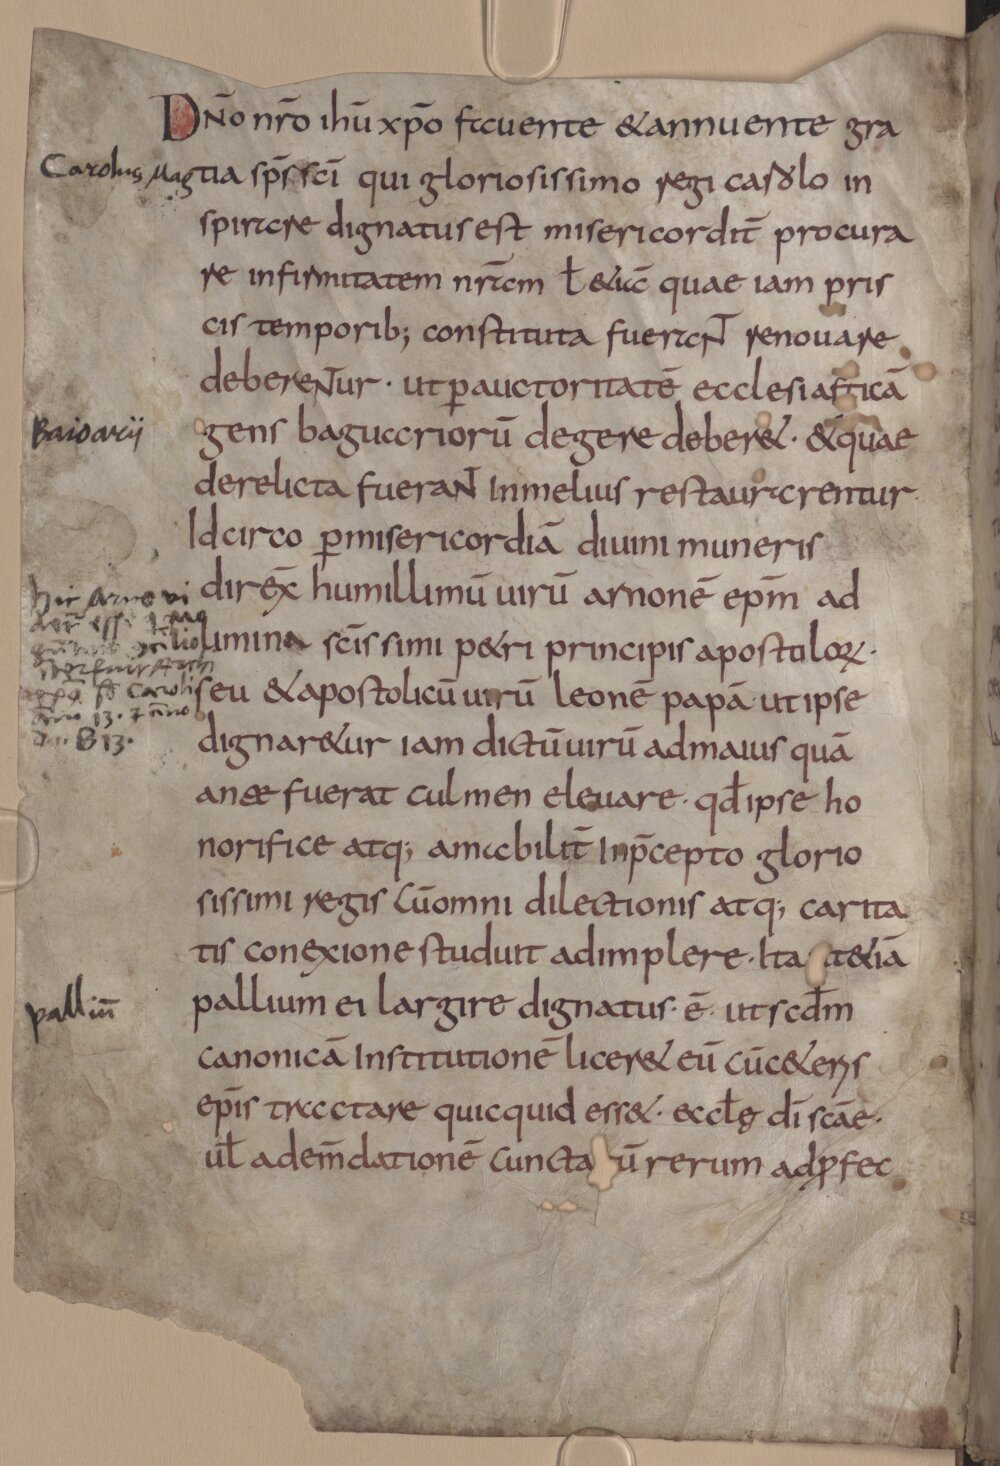 DÑo nr̄o ihū xp̄o fauente &annuente gra
Carolus Mag
tia sp̄s scī qui gloriosissimo regi carolo in
spirare dignatus est misericordit̄ procura
re infirmitatem nr̄am ł &iā quae iam pris
cis temporib; constituta fueraɴᴛ renouare
debereɴᴛur · ut ꝑauctoritatē ecclesiasticā
Baioarij
gens baguuariorū degere deber&· &quae
derelicta fueraɴᴛ Inmelius restaurarentur
Idcirco ꝑmisericordiā diuini muneris
direx̄ humillimū uirū arnonē ep̄m ad
hic Arno vi
limina scīssimi p&ri principis apostoloꝝ·
seu &apostolicū uirū leonē papā ut ipse
dignar&ur iam dictū uirū admaius quā
an 813.
ante fuerat culmen eleuare · qđipse ho
norifice atq; amabilit̄ Inp̄cepto glorio
sissimi regis cūomni dilectionis atq; carita
tis conexione studuit adimplere · Ita &iā
palliū
pallium ei largire dignatus· ē· ut scđm
canonicā Institutionē licer& eū cūc&eris
ep̄is tractare quicquid ess&· eccłę dī scāe·
uł adem̄dationē cuncta ū rerum adꝑfec